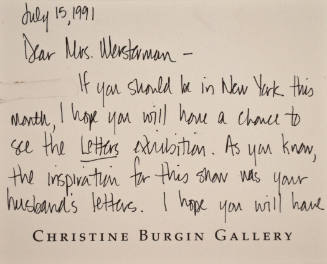 July 15, 1991
Dear Mrs. Westerman –
If you should be in New York this
month, I hope you will have a chance to
see the Letters exhibition. As you know,
the inspiration for this show was your
husband's letters. I hope you will have
CHRISTINE BURGIN GALLERY